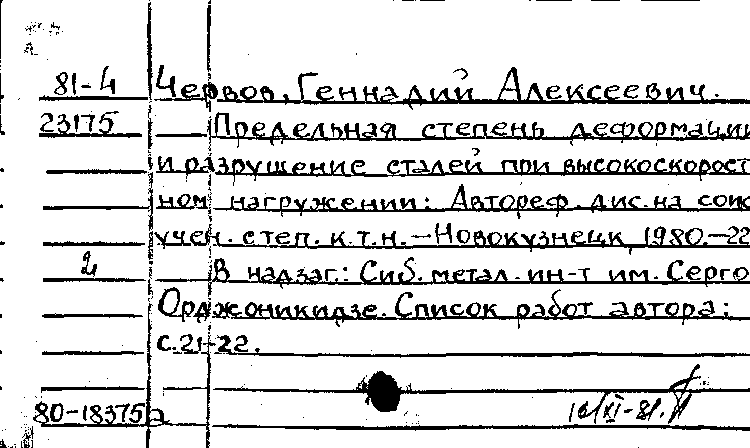 81-4 Червов, Геннадий Алексеевич.
23175 Предельная степень деформации
и разрушение сталей при высокоскорост
ном нагружении: Автореф. дис. на соис
учен. степ. к.т.н. — Новокузнецк, 1980. — 22
2 В надзаг.: Сиб. метал. ин-т им. Серго
Орджоникидзе. Список работ автора:
с. 21-22.
80-18375а